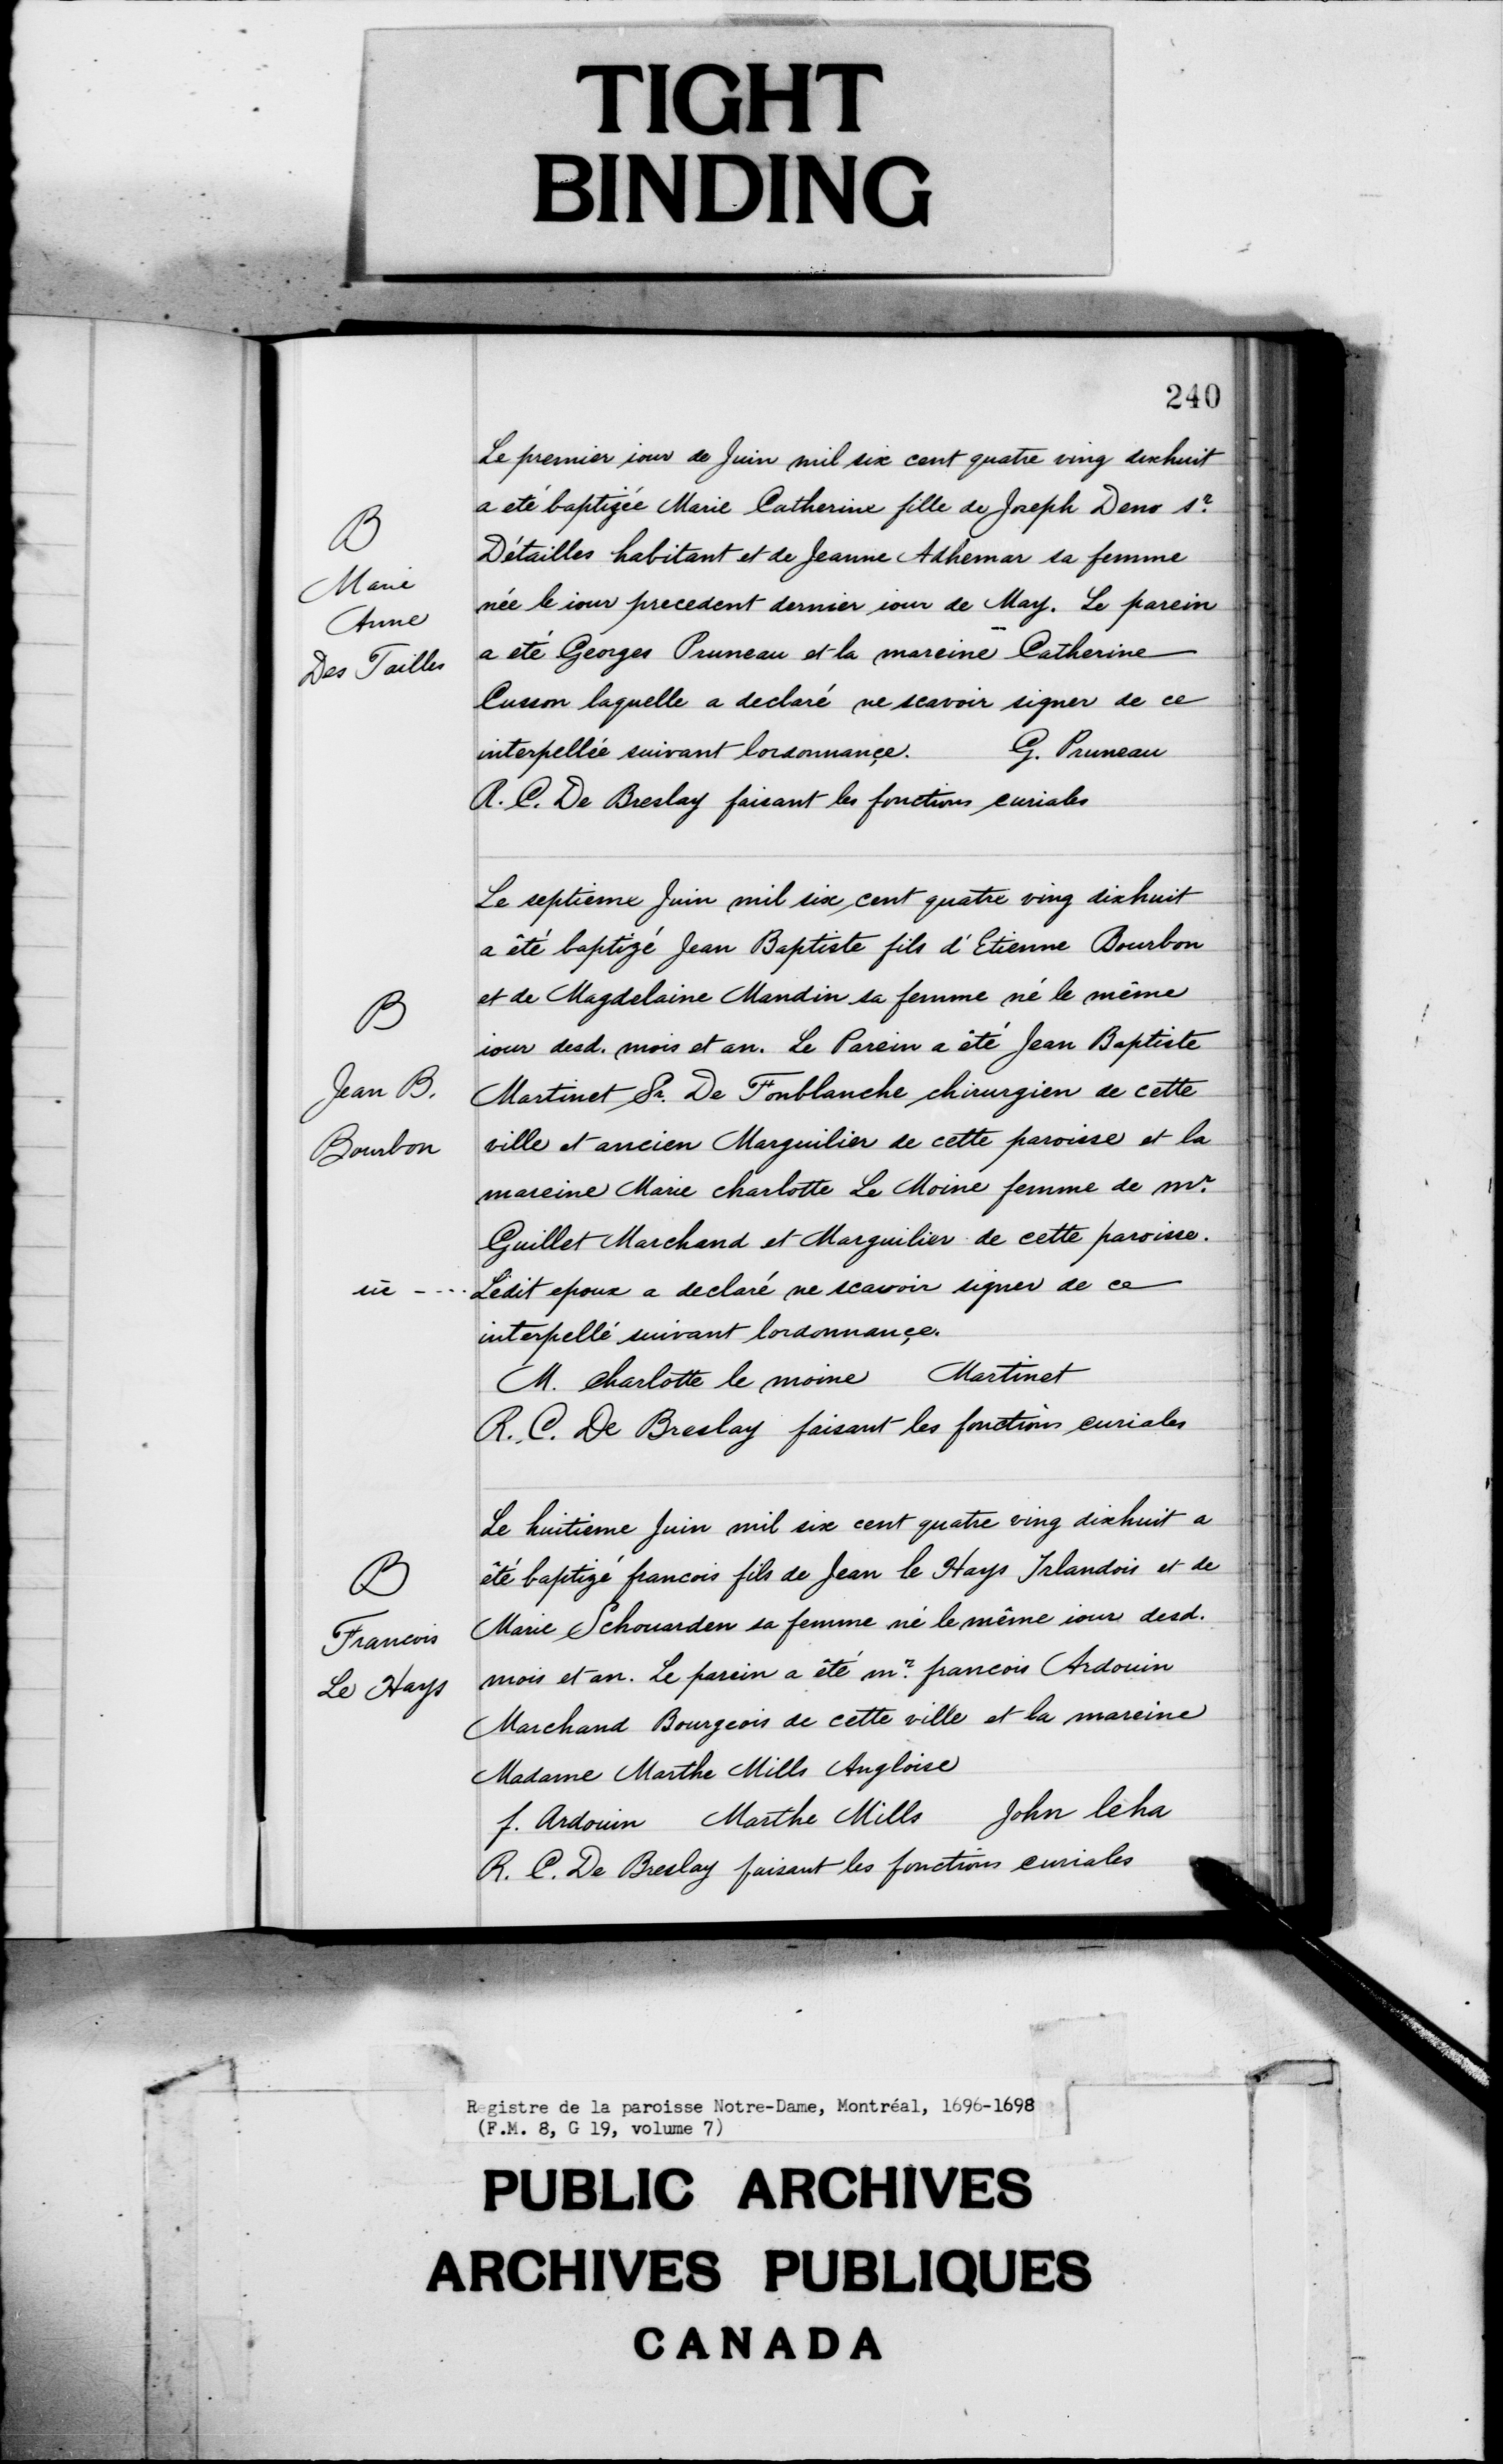 TIGHT
BINDING
240
Le premier iour de Juin mil six cent quatre ving dixhuit
a eté baptizée Marie Catherine fille de Joseph Deno sr.
Détailles habitant et de Jeanne Adhemar sa femme
née le iour precedent dernier iour de May. Le parein
a eté Georges Pruneau et la mareine Catherine
Cusson laquelle a declaré ne scavoir signer de ce
interpellée suivant lordonnançe. G. Pruneau
R. C. De Breslay faisant les fonctions curiales
B
Marie
Anne
Des Tailles
Le septieme Juin mil six cent quatre ving dixhuit
a êté baptizé Jean Baptiste fils d'Etienne Bourbon
et de Magdelaine Mandin sa femme né le même
iour desd. mois et an. Le Parein a êté Jean Baptiste
Martinet Sr. De Fonblanche chirurgien de cette
ville et ancien Marguilier de cette paroisse et la
mareine Marie charlotte Le Moine femme de mr.
Guillet Marchand et Marguilier de cette paroisse.
Ledit epoux a declaré ne scavoir signer de ce
interpellé suivant lordonnançe.
M. Charlotte le moine Martinet
R. C. De Breslay faisant les fonctions curiales
B
Jean B.
Bourbon
sic - - - -
Le huitieme Juin mil six cent quatre ving dixhuit a
êté baptizé francois fils de Jean le Hays Irlandois et de
Marie Schouarden sa femme né le même iour desd.
mois et an. Le parein a êté mr. francois Ardouin
Marchand Bourgeois de cette ville et la mareine
Madame Marthe Mills Angloise
f. Ardouin Marthe Mills John leha
R. C. De Breslay faisant les fonctions curiales
B
Francois
Le Hays
Registre de la paroisse Notre-Dame, Montréal, 1696-1698
(F.M. 8, G 19, volume 7)
PUBLIC ARCHIVES
ARCHIVES PUBLIQUES
CANADA